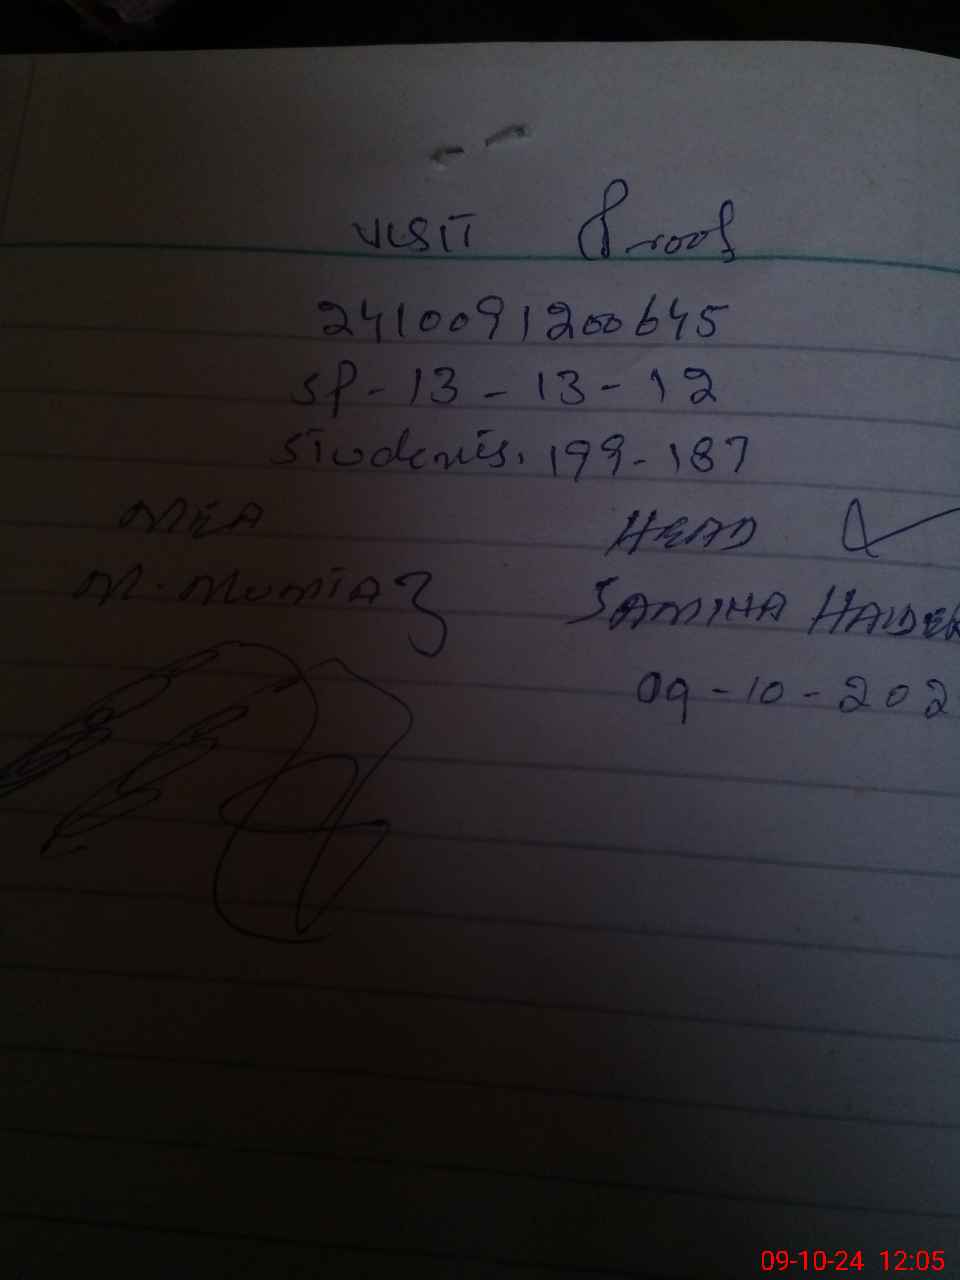 VISIT Proof
2410091200645
SP-13-13-12
Students. 199-187
MEA HEAD
M. MUMTAZ SAMINA HAIDER
09-10-202
09-10-24 12:05